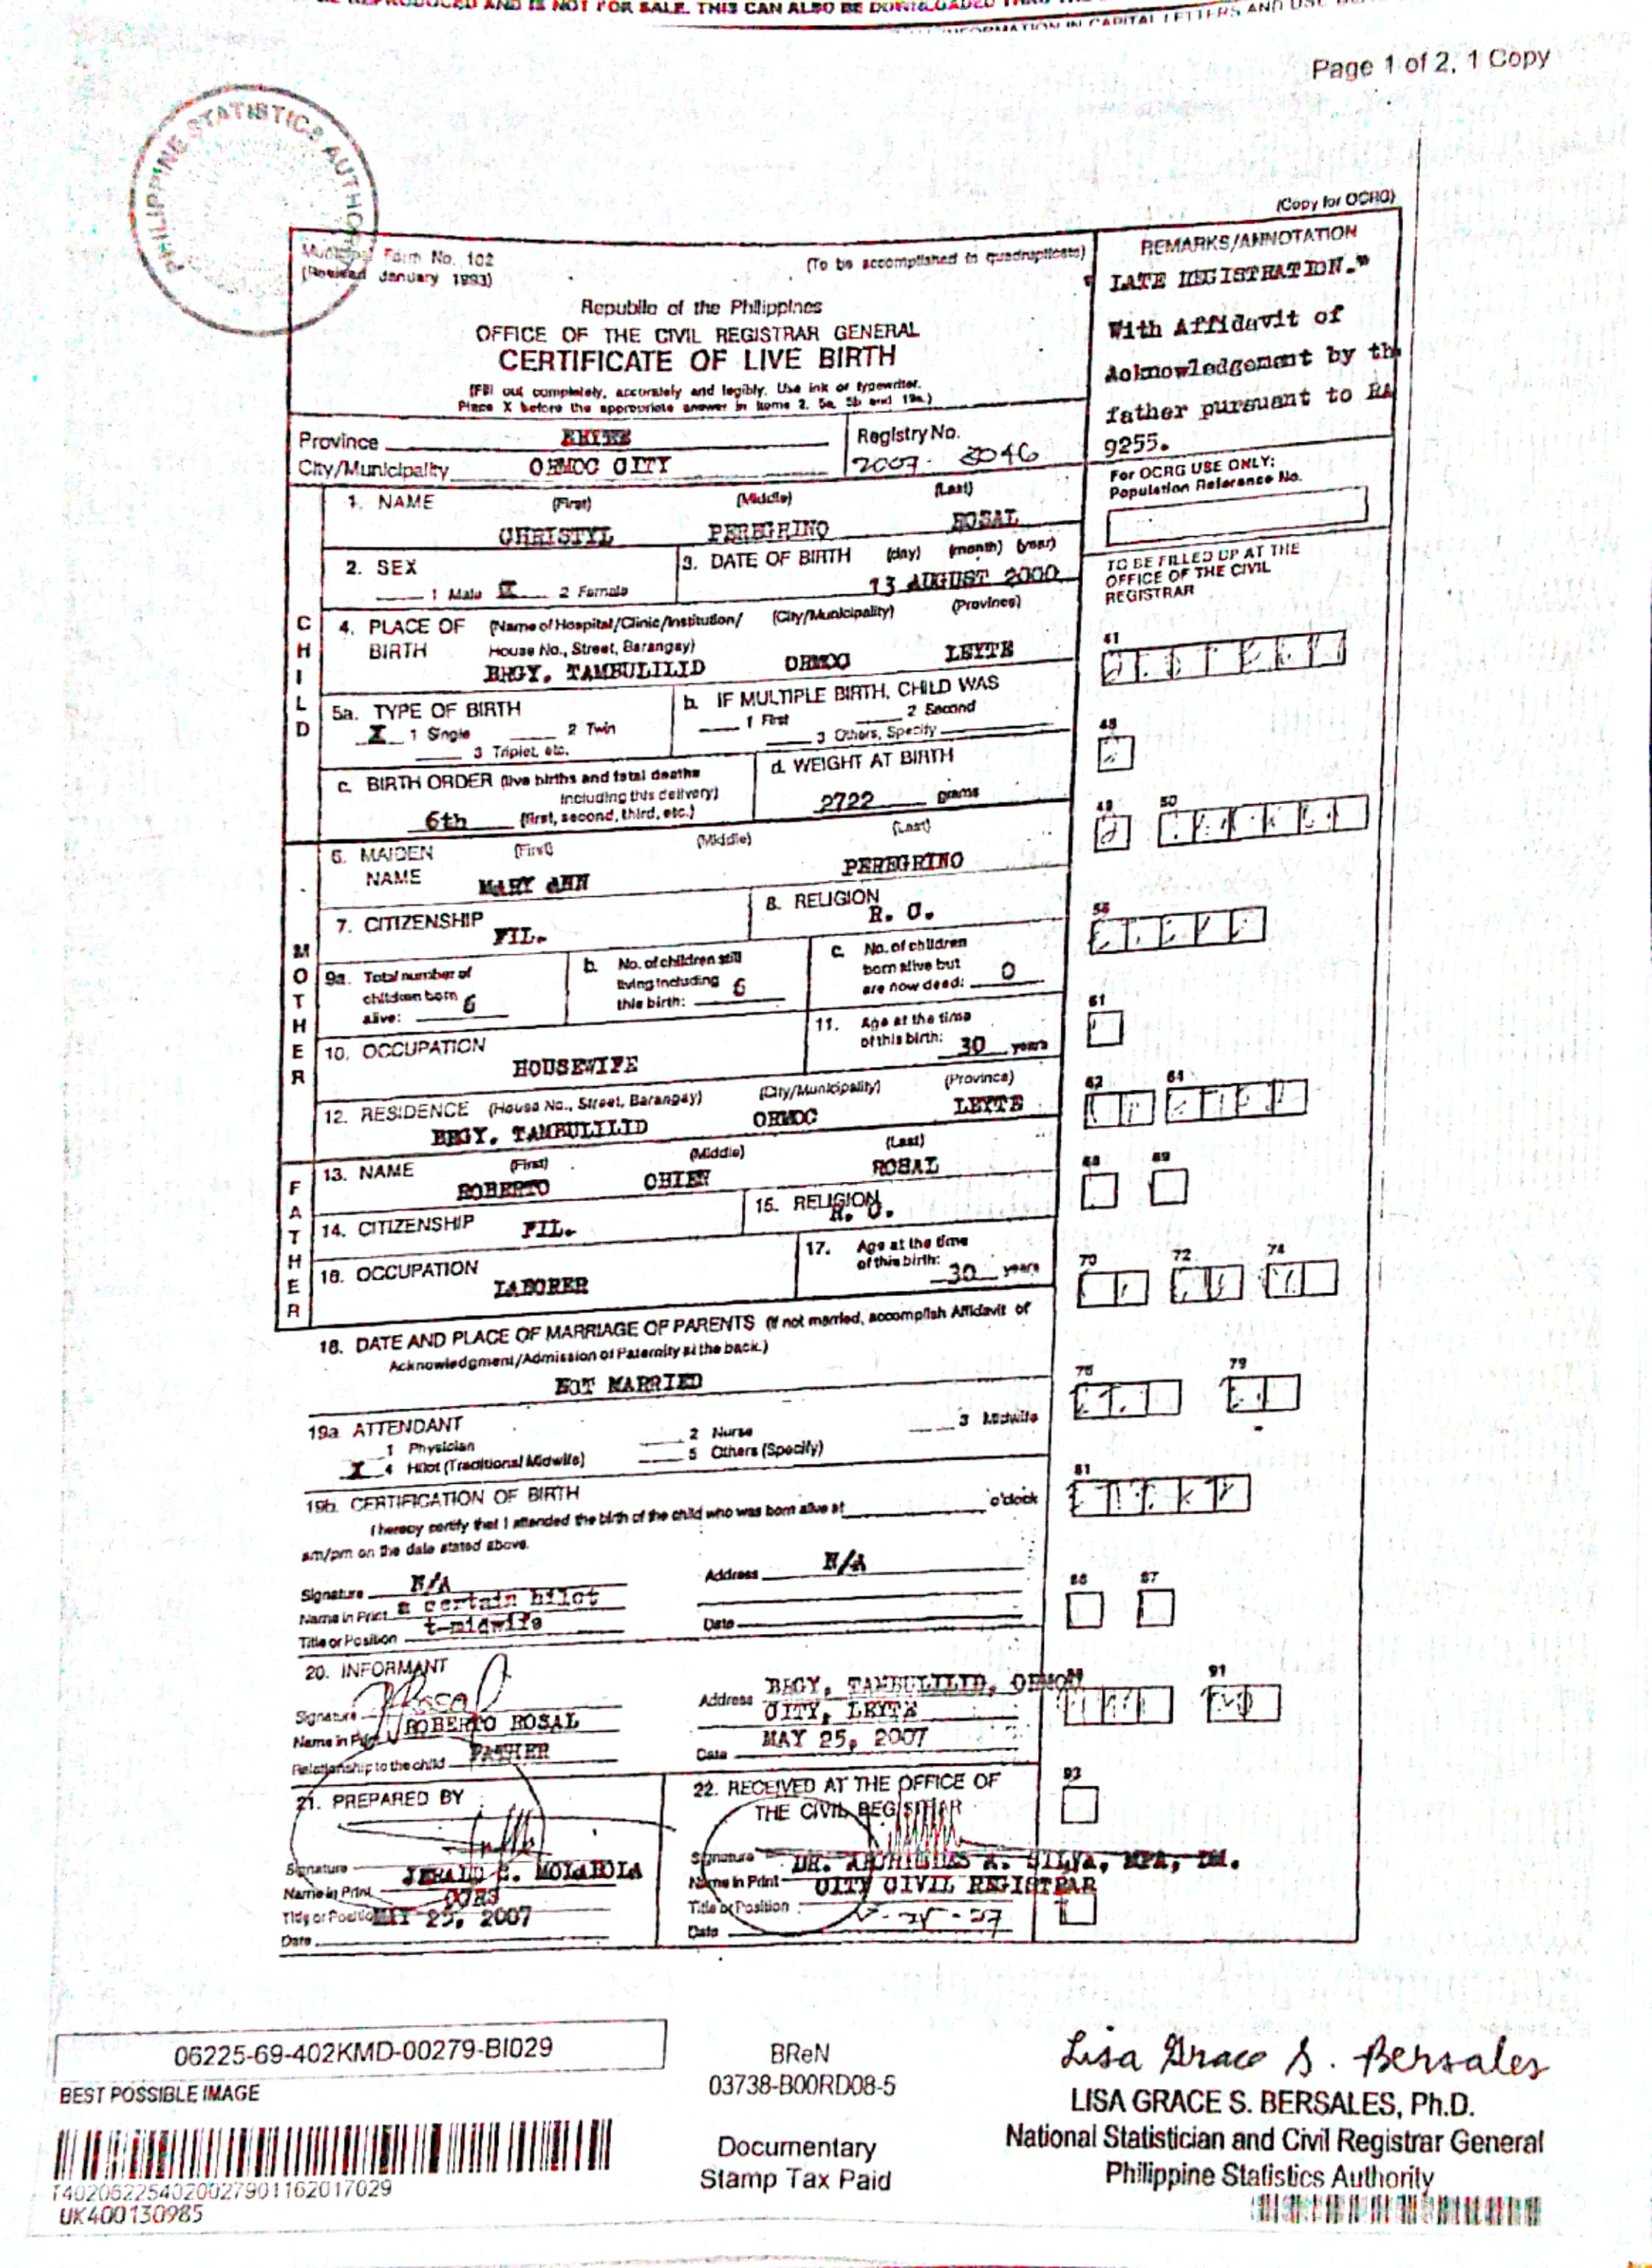 REPRODUCED AND IS NOT FOR SALE. THIS CAN ALSO BE DOWNLOADED
INFORMATION IN CAPITAL LETTERS AND USE
Page 1 of 2, 1 Copy
PHILIPPINE STATISTICS AUTHORITY
(Copy for OCRG)
Municipal Form No. 102
(Revised January 1993)
(To be accomplished in quadruplicate)
Republic of the Philippines
OFFICE OF THE CIVIL REGISTRAR GENERAL
CERTIFICATE OF LIVE BIRTH
(Fill out completely, accurately and legibly. Use ink or typewriter.
Place X before the appropriate answer in items 2, 5a, 5b and 19a.)
REMARKS/ANNOTATION
LATE REGISTRATION."
With Affidavit of
Acknowledgement by th
father pursuant to RA
9255.
Province LEYTE
City/Municipality ORMOC CITY
Registry No.
2007-
For OCRG USE ONLY:
Population Reference No.
TO BE FILLED UP AT THE
OFFICE OF THE CIVIL
REGISTRAR
CHILD
1. NAME (First) (Middle) (Last)
CHRISTYL PEREGRINO ROSAL
2. SEX
1 Male X 2 Female
3. DATE OF BIRTH (day) (month) (year)
13 AUGUST 2000
4. PLACE OF BIRTH (Name of Hospital/Clinic/Institution/ (City/Municipality) (Province)
House No., Street, Barangay)
BRGY. TAMBULILID ORMOC LEYTE
5a. TYPE OF BIRTH
X 1 Single 2 Twin
3 Triplet, etc.
b. IF MULTIPLE BIRTH, CHILD WAS
1 First 2 Second
3 Others, Specify
c. BIRTH ORDER (live births and fetal deaths
including this delivery)
6th (first, second, third, etc.)
d. WEIGHT AT BIRTH
2722 grams
MOTHER
6. MAIDEN NAME (First) (Middle) (Last)
MARY ANN PEREGRINO
7. CITIZENSHIP FIL.
8. RELIGION R. C.
9a. Total number of
children born
alive: 6
b. No. of children still
living including
this birth: 6
c. No. of children
born alive but
are now dead: 0
10. OCCUPATION
HOUSEWIFE
11. Age at the time
of this birth: 30 years
12. RESIDENCE (House No., Street, Barangay) (City/Municipality) (Province)
BRGY. TAMBULILID ORMOC LEYTE
FATHER
13. NAME (First) (Middle) (Last)
ROBERTO ROSAL
14. CITIZENSHIP FIL.
15. RELIGION R. C.
16. OCCUPATION
LABORER
17. Age at the time
of this birth: 30 years
18. DATE AND PLACE OF MARRIAGE OF PARENTS (If not married, accomplish Affidavit of
Acknowledgment/Admission of Paternity at the back.)
NOT MARRIED
19a. ATTENDANT
1 Physician 2 Nurse 3 Midwife
X 4 Hilot (Traditional Midwife) 5 Others (Specify)
19b. CERTIFICATION OF BIRTH
I hereby certify that I attended the birth of the child who was born alive at o'clock
am/pm on the date stated above.
Signature N/A
Name in Print a certain hilot
Title or Position t-midwife
Address N/A
Date
20. INFORMANT
Signature
Name in Print ROBERTO ROSAL
Relationship to the child FATHER
Address BRGY. TAMBULILID, ORMOC
CITY, LEYTE
Date MAY 25, 2007
21. PREPARED BY
Signature
Name in Print JERALD
Title or Position
Date MAY 25, 2007
22. RECEIVED AT THE OFFICE OF
THE CIVIL REGISTRAR
Signature
Name in Print DR. SILVA, MPA, DM.
Title or Position CITY CIVIL REGISTRAR
Date
41
48
49 50
56
61
62 64
68 69
70 72 74
75 79
81
86 87
91
93
06225-69-402KMD-00279-BI029
BEST POSSIBLE IMAGE
T402062254020027901162017029
UK400130985
BReN
03738-B00RD08-5
Documentary
Stamp Tax Paid
Lisa Grace S. Bersales
LISA GRACE S. BERSALES, Ph.D.
National Statistician and Civil Registrar General
Philippine Statistics Authority